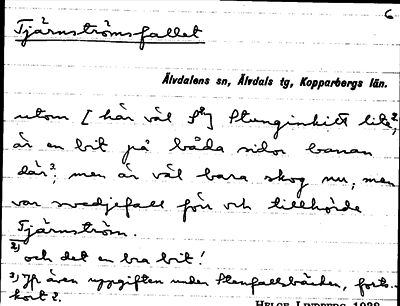 6
Tjärnströmsfallet
Älvdalens sn, Älvdals tg, Kopparbergs län.
utom [här väl St] Stunginkitt lite,2)
är en bit på båda sidor banan
där? men är väl bara skog nu, men
var svedjefall förr och tillhörde
Tjärnström.
2) och det en bra bit!
1) Jfr även uppgiften under Stenfallsbäcken, forts.-
kort 2.
HELGE LINDBERG 1938